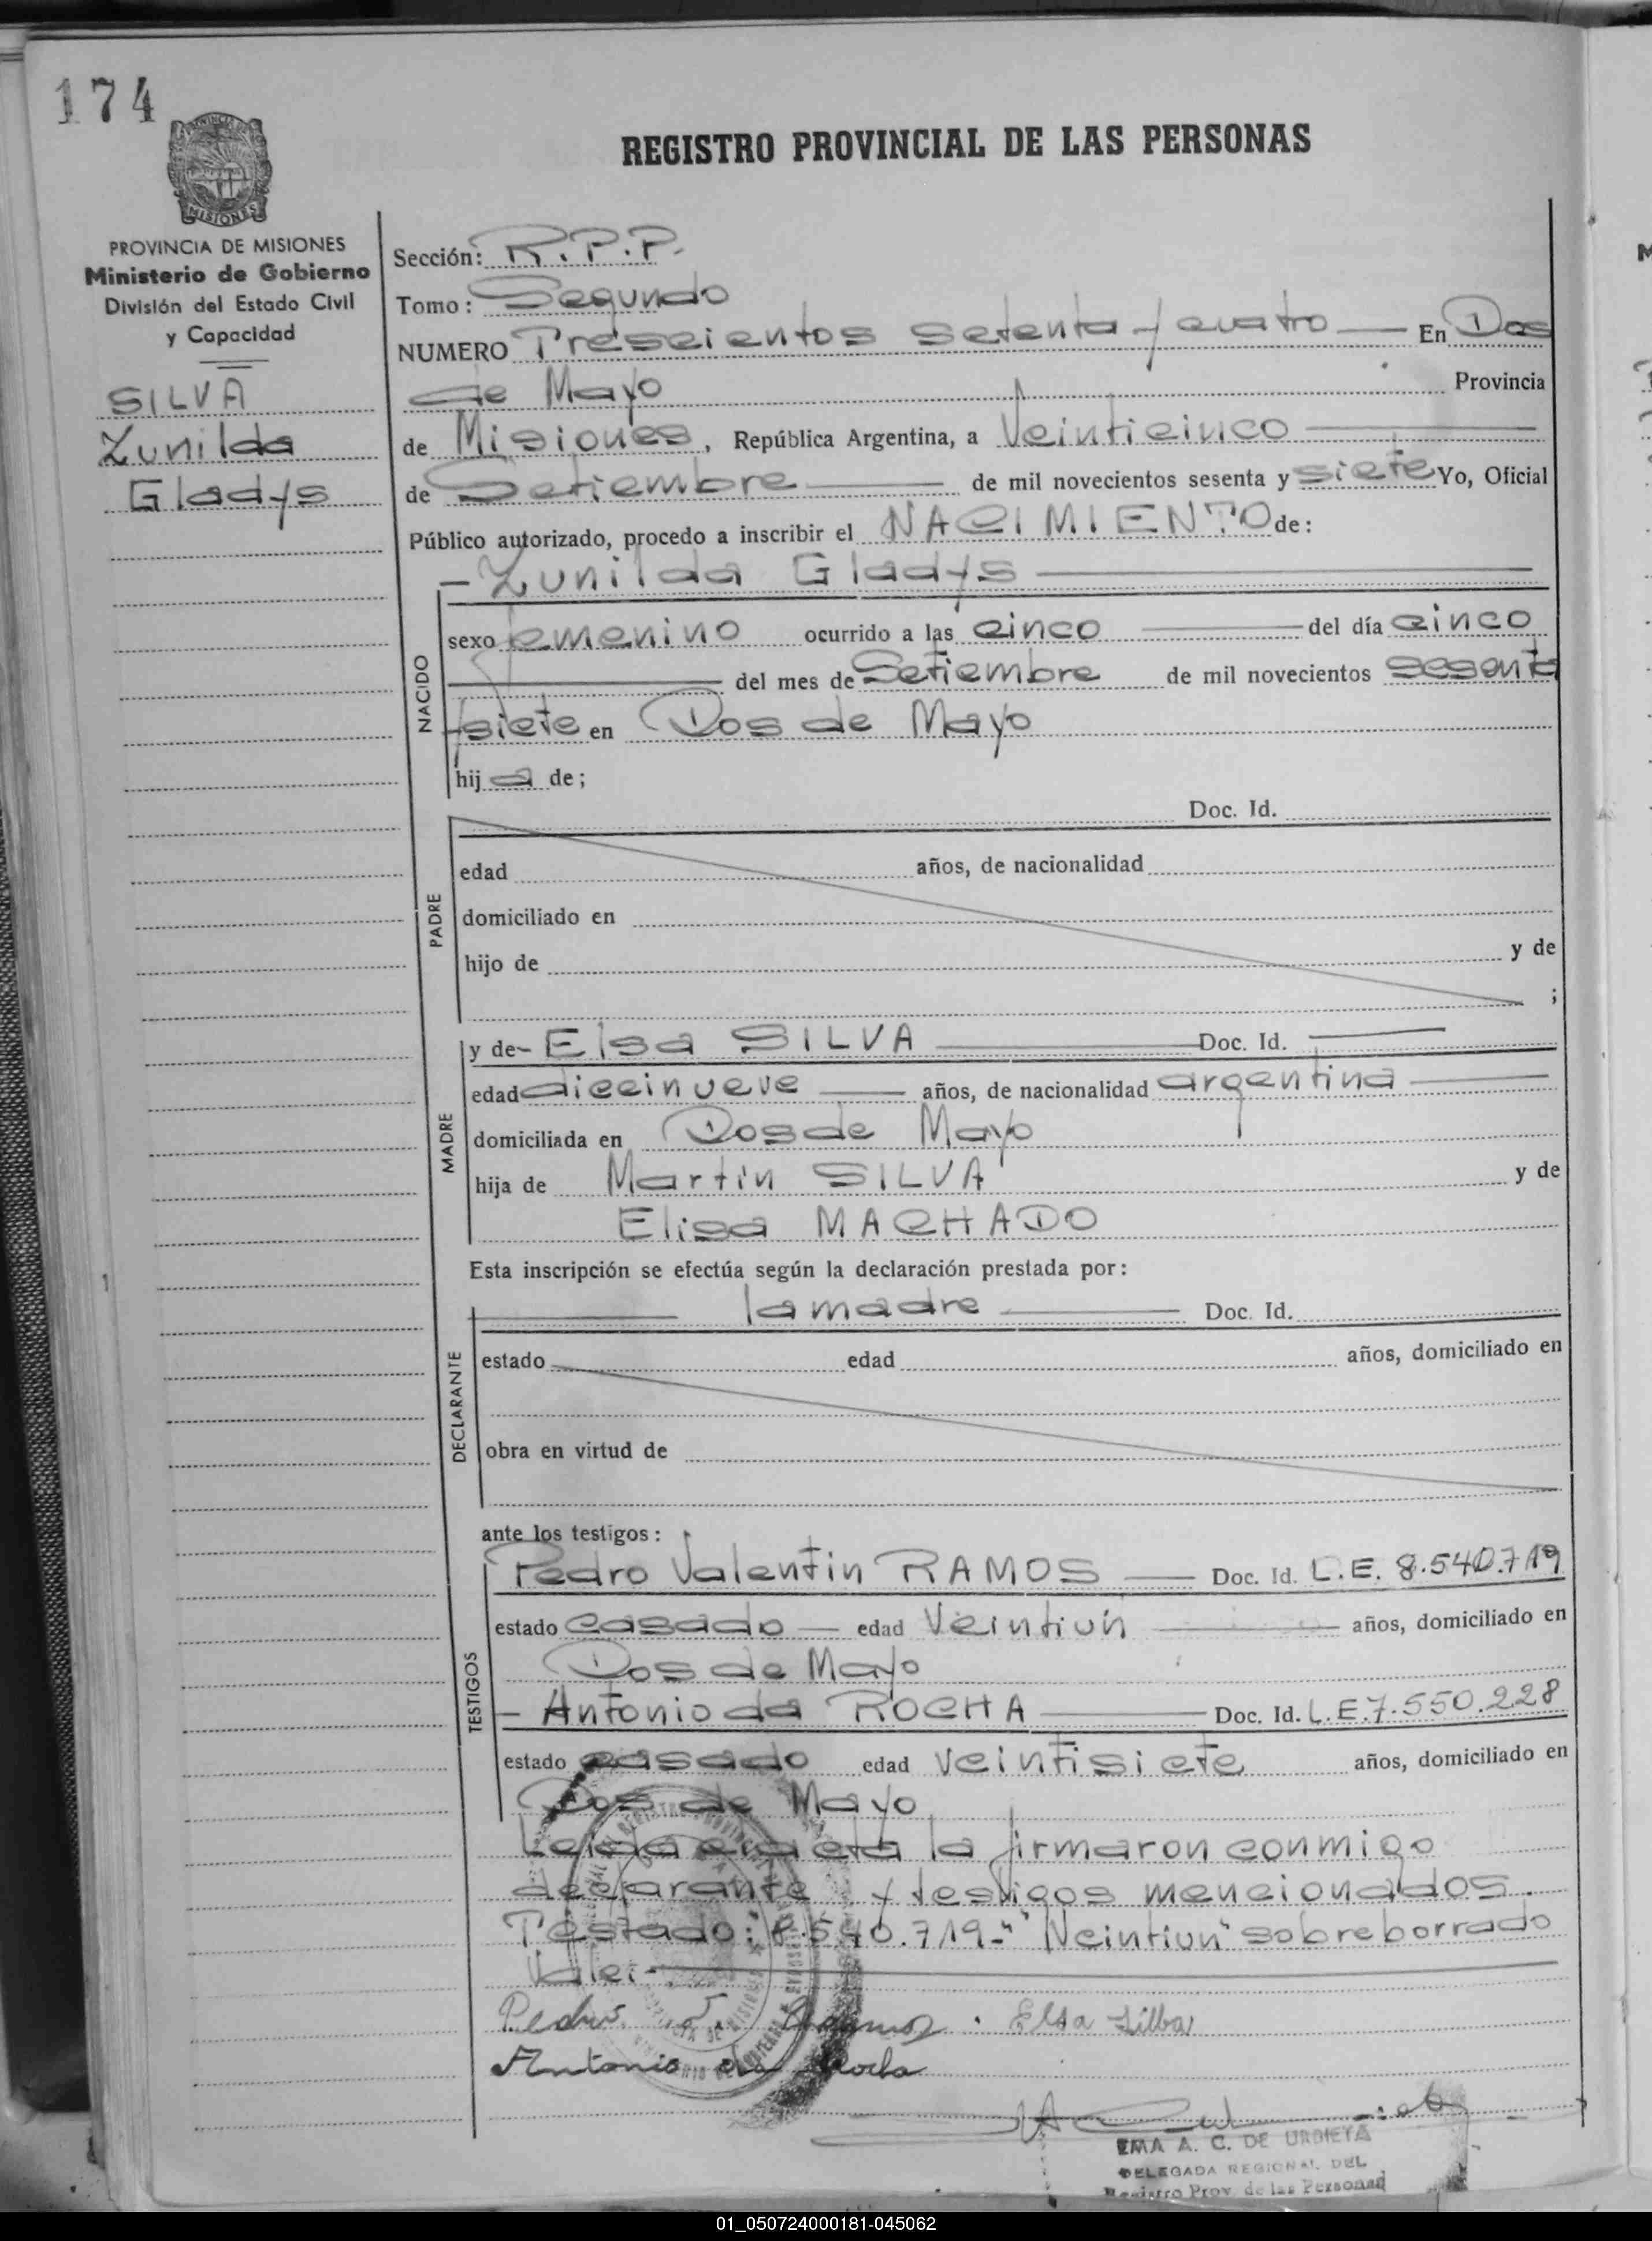 174
PROVINCIA DE MISIONES
Ministerio de Gobierno
División del Estado Civil
y Capacidad
SILVA
Zunilda
Gladys
REGISTRO PROVINCIAL DE LAS PERSONAS
Sección: R.P.P.
Tomo: Segundo
NUMERO Trescientos setenta y cuatro En Dos
de Mayo Provincia
de Misiones, República Argentina, a Veinticinco
de Setiembre de mil novecientos sesenta y siete Yo, Oficial
Público autorizado, procedo a inscribir el NACIMIENTO de:
- Zunilda Gladys
NACIDO
sexo femenino ocurrido a las cinco del día cinco
del mes de Setiembre de mil novecientos sesenta
y siete en Dos de Mayo
hij a de;
PADRE
Doc. Id.
edad años, de nacionalidad
domiciliado en
hijo de y de
;
MADRE
y de- Elsa SILVA Doc. Id.
edad diecinueve años, de nacionalidad argentina
domiciliada en Dos de Mayo
hija de Martin SILVA y de
Elisa MACHADO
Esta inscripción se efectúa según la declaración prestada por:
DECLARANTE
la madre Doc. Id.
estado edad años, domiciliado en
obra en virtud de
ante los testigos:
TESTIGOS
Pedro Valentin RAMOS Doc. Id. L.E. 8.540.719
estado casado edad Veintiún años, domiciliado en
Dos de Mayo
- Antonio da ROCHA Doc. Id. L.E. 7.550.228
estado casado edad veintisiete años, domiciliado en
Dos de Mayo
Leida el acta la firmaron conmigo
declarante y testigos mencionados.
Testado: 8.540.719-" Veintiun" sobreborrado
Vale:-
Pedro Ramos. Elsa Silba
Antonio da Rocha
EMA A. C. DE URBIETA
DELEGADA REGIONAL DEL
Registro Prov. de las Personas
01_050724000181-045062